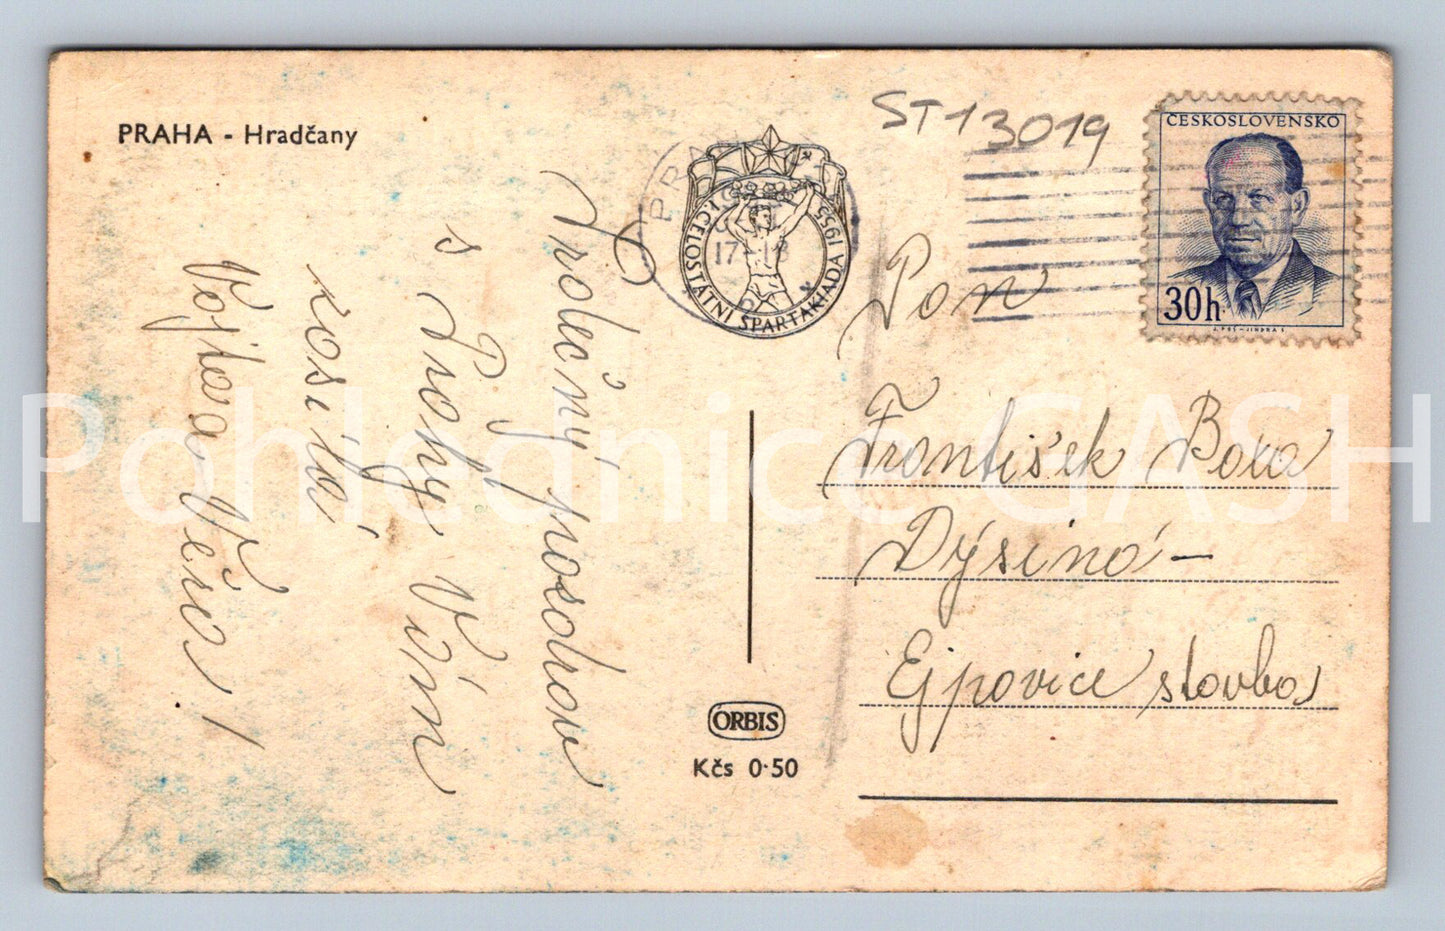 PRAHA - Hradčany
ST13019
ČESKOSLOVENSKO
30h
I. CELOSTÁTNÍ SPARTAKIÁDA 1955
Srdečný pozdrav
s Prahy Vám
zasílá
Vojta a Věra!
Pan
František Boxa
Dýšiná –
Ejpovice stavba
ORBIS
Kčs 0·50
Pohlednice GASH